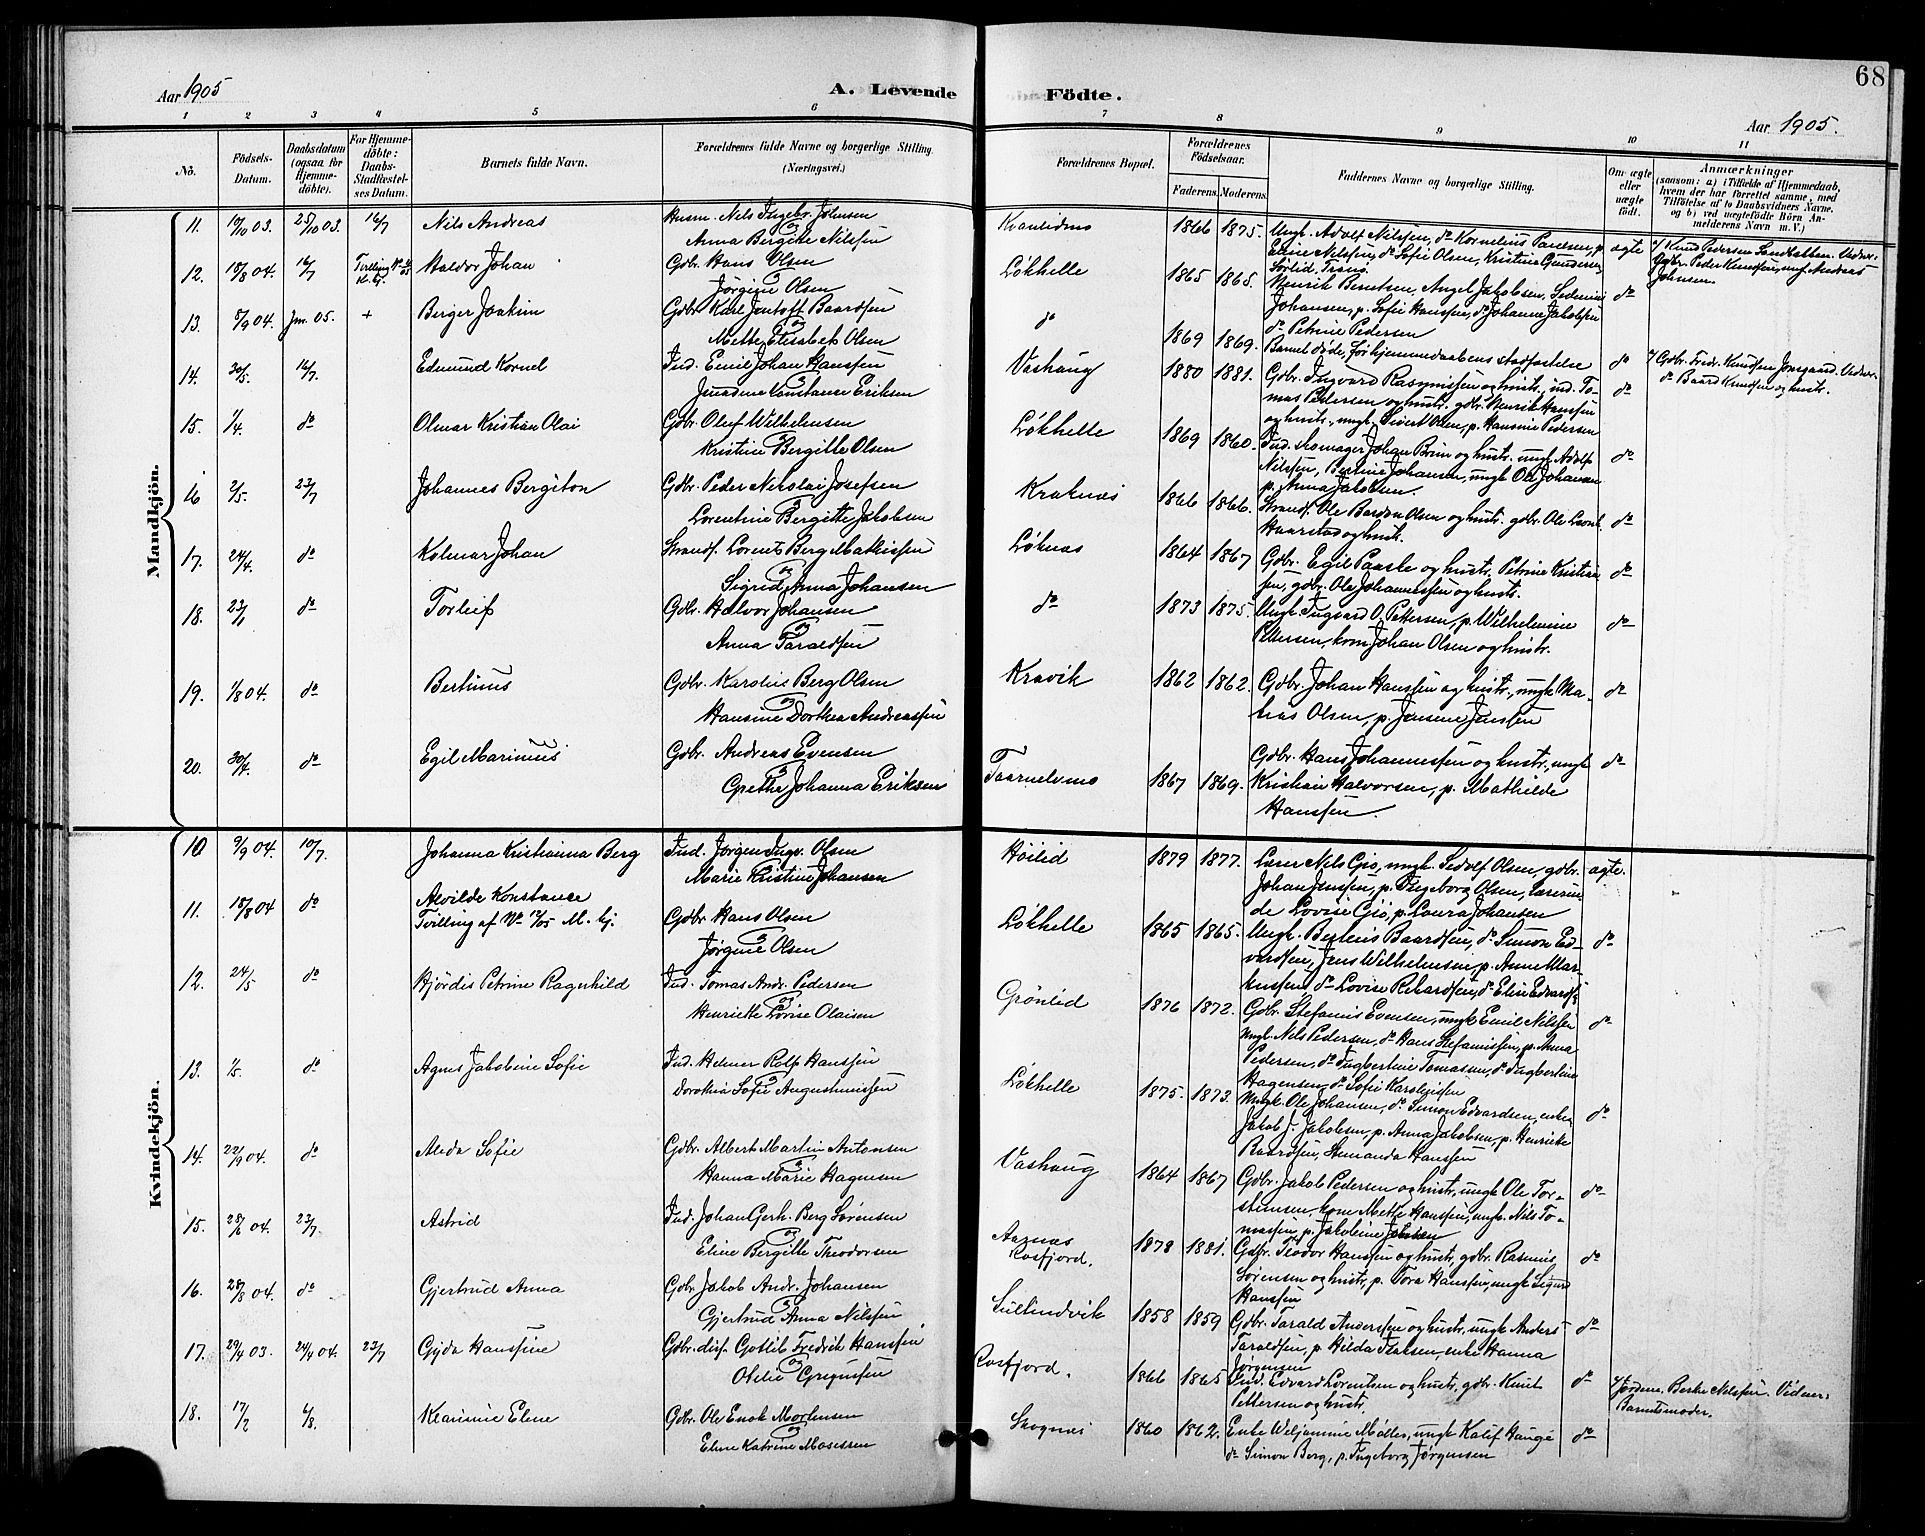 68
Aar 1905
A. Levende
Födte.
Aar 1905.
1 2 3 4 5 6 7 8 9 10 11
No.
Födsels-
Datum.
Daabsdatum
(ogsaa for
Hjemme-
döbte).
For Hjemme-
döbte:
Daabs-
Stadfæstel-
ses Datum.
Barnets fulde Navn.
Forældrenes fulde Navne og borgerlige Stilling.
(Næringsvei.)
Forældrenes Bopæl.
Forældrenes
Födselsaar.
Faderens. Moderens.
Faddernes Navne og borgerlige Stilling.
Om ægte
eller
uægte
født.
Anmærkninger
(saasom: a) i Tilfælde af Hjemmedaab,
hvem der har forrettet samme, med
Tilföielse af to Daabsvidners Navne,
og b) ved uægtefödte Börn An-
melderens Navn m. V.)
Mandkjön.
11. 17/10 03. 25/10 03. 16/7 Nils Andreas
Husm. Nils Ingebr. Johnsen
og
Anna Bergitte Nilssen
Kvanlidmo 1866 1875.
Ungk. Adolf Nilssen, do Kornelius Paulsen, p.
Eline Nilssen, do Sofie Olsen, Kristine Gundersen
Sørlid, Trane
ægte
12. 18/8 04. 16/7 Haldor Johan
Gdbr. Hans Olsen
og
Jørgine Olsen
Løkhelle 1865 1865.
Henrik Berntsen, Angel Jakobsen,
Johansen, p. Sofie Hanssen, do Johanna Jakobsen
do Petrine Pedersen
do
13. 8/9 04. Jan. 05. + Berger Joakim
Gdbr. Karl Jentoft Baardsen
og
Mette Elisabet Olsen
do 1869 1869.
Barnet døde før hjemmedaabens stadfæstelse
do
Gdbr. Fredr. Knudsen
do Baard Knudsen og hustr.
14. 30/5. 16/7. Edmund Kornel
Ind. Emil Johan Hanssen
og
Konstanse Eriksen
Vashaug 1880 1881.
Gdbr. Ingvard Rasmussen og hustr., ind. To-
mas Pedersen og hustr. gdbr. Henrik Hanssen
og hustr., ungk. Sivert Olsen, p. Hansine Pedersen
do
15. 1/4. do Olmar Kristian Olai
Gdbr. Oluf Wilhelmsen
og
Kristine Bergitte Olsen
Løkhelle 1869 1860.
Ind. Johan Brun og hustr. ungk. Adolf
Nilssen, Bertine Johansen, ungk Ole Johansen
p. Anna Jakobsen.
do
16 2/5. 23/7 Johannes Bergiton
Gdbr. Peder Nikolai Josefsen
og
Lorentine Bergitte Jakobsen
Kraknæs 1866 1866.
Strands. Ole Bardon Olsen og hustr. gdbr. Ole
Haarstad og hustr.
do
17. 24/4. do Kolmar Johan
Strands. Lorents Berg Mathissen
og
Sigrid Anna Johansen
Løknæs 1864 1867
Gdbr. Egil Paaske og hustr. Petrine Kristian
sen, gdbr. Ole Johannessen og hustr.
do
18. 23/1 do Torleif
Gdbr. Halvor Johansen
og
Anna Taraldsen
do 1873 1875.
Ungk. Ingvard O. Pettersen, p. Wilhelmine
Pettersen, kone Johan Olsen og hustr.
do
19. 1/8 04. do Bertinus
Gdbr. Karolius Berg Olsen
og
Hansine Dorthea Andreassen
Kravik 1862 1862.
Gdbr. Johan Hanssen og hustr., ungk Ma-
tias Olsen, p. Jensine Jenssen
do
20. 30/4. do Egil Marinius
Gdbr. Andreas Evensen
og
Grethe Johanna Eriksen
Taarnelvmo 1867 1869.
Gdbr. Hans Johannessen og hustr., ungk
Kristian Halvorsen, p. Mathilde
Hanssen.
do
Kvindekjön.
10 9/9 04. 10/7. Johanna Kristianna Berg
Ind. Jørgen Ingv. Olsen
Marie Kristine Johansen
Høilid 1879 1877.
Lærer Nils Gjø, ungk. Sedolf Olsen, gdbr.
Johan Jenssen, p. Ingeborg Olsen, lærerin
de Lovise Gjø, p. Laura Johansen
ægte.
11. 18/8 04 do Alvilde Konstance
Tvilling af No 12/05 M. kj.
Gdbr. Hans Olsen
og
Jørgine Olsen
Løkhelle 1865 1865.
Ungk. Bertius Baardsen, do Simon Ed-
vardsen, Jens Wilhelmsen, p. Anne Mar-
kussen do Lovise Rikardsen, do Eline Edvards
do
12. 24/5 do Hjördis Petrine Ragnhild
Ind. Tomas Andr. Pedersen
og
Henriette Lovise Olaisen
Grønlid 1876 1872.
Gdbr. Stefanus Evensen, ungk Emil Nilssen
ungk. Nils Pedersen, do Hans Stefanussen, p. Anna
Pedersen, do Ingbertine Tomassen, do Ingbertine
Hagensen, do Sofie
do
13. 1/5. do Agnes Jakobine Sofie
Ind. Helmer Rolf Hanssen
og
Dorothea Sofie Augustinussen
Løkhelle 1875. 1873.
Ungk. Ole Johansen, do Simon Edvardsen, enkem.
Jakob J. Jakobsen, p. Anna Jakobsen, p. Henrikke
Baardsen, Hemanda Hanssen
do
14. 22/9 04. do Alida Sofie
Gdbr. Albert Martin Antonsen
og
Hanna Marie Hagensen
Vashaug 1864 1867
Gdbr. Jakob Pedersen og hustr., ungk Ole Tor-
stensen, kone Mette Hanssen, ungk. Nils To-
massen, p. Jakobine Johnsen
do
15. 28/6 04. 23/7. Astrid
Ind. Johan Gerh. Berg Sørensen
og
Eline Bergitte Theodorsen
Aarnæs
Rosfjord. 1878 1881.
Gdbr. Teodor Hanssen og hustr., gdbr. Rasmus
Sørensen og hustr., p. Tora Hanssen, ungk Sigurd
Hanssen
do
16. 28/8 04. do Gjertrud Anna
Gdbr. Jakob Andr. Johansen
og
Gjertrud Anna Nilssen
Sultindvik 1858 1859
Gdbr. Tarald Anderssen og hustr., ungk Anders
Taraldsen, p. Hilda Isaksen, enke Hanna
Jørgensen
do
17. 29/4 03. 24/4 04. 23/7 Gyda Hanssine
Gdbr. disp. Gotlib Fredrik Hanssen
og
Ovelie Gregussen
Rosfjord. 1866 1865
Ind. Edvard Lorentsen og hustr., gdbr. Knut
Pettersen og hustr.
do
Jordem. Berte Nilssen. Vidner:
Barnets moder.
18. 17/2 6/8. Klarine Elene
Gdbr. Ole Enok Mortensen
og
Eline Katrine Mosessen
Skognes 1860 1862.
Enke Weljamine Møller, ungk Kalif Hauge
do Simon Berg, p. Ingeborg Jørgensen
do